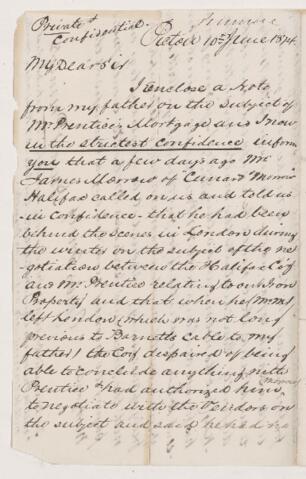 Private &
Confidential.
Pictou 10th June 1874
My Dear Sir
I enclose a Note
from my father on the subject of
Mr Prentice's Mortgage and I now
in the strictest confidence inform
you that a few days ago Mr
James Morrow of Cunard Morrow
Halifax called on us and told us
in confidence that he had been
behind the scenes in London during
the winter on the subject of the ne
gotiation between the Halifax Coy
and Mr Prentice relating to our Iron
Property and that when he (Mr M)
left London (which was not long
previous to Barnetts cable to my
father) the Coy despaired of being
able to conclude anything with
Prentice & had authorized him (Morrow)
to negotiate with the Vendors on
the subject and said he had